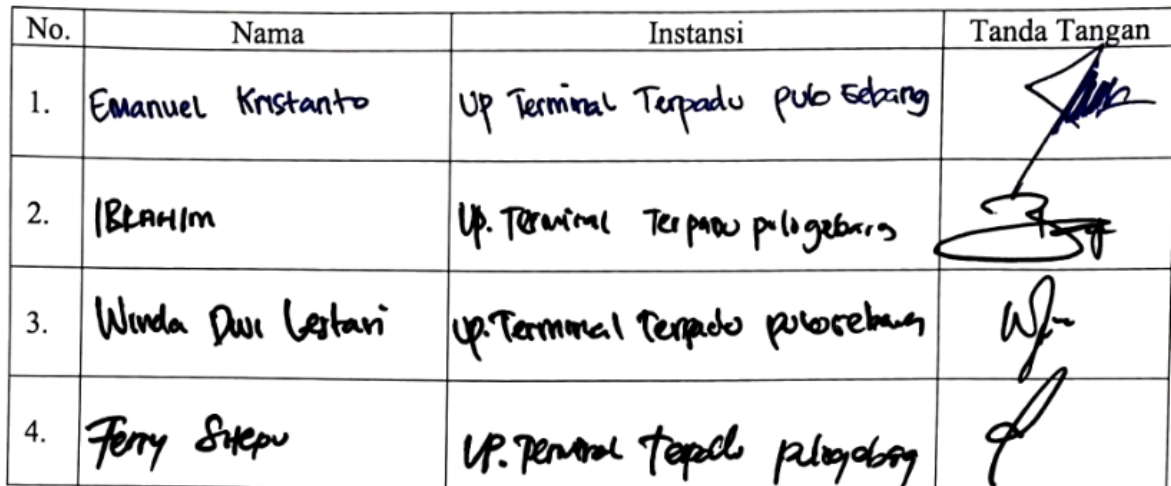 No. Nama Instansi Tanda Tangan
1. Emanuel Kristanto UP Terminal Terpadu pulo Gebang
2. IBRAHIM UP. Terminal Terpadu pulogebang
3. Winda Dwi Lestari UP. Terminal Terpadu pulogebang
4. Ferry Sitepu UP. Terminal Terpadu pulogebang